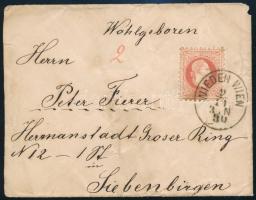 Wohlgeboren
Herrn
2
Peter Fierer
Hermanstadt Groser Ring
No 12 - 1 St
Siebenbirgen
WIEDEN WIEN
80